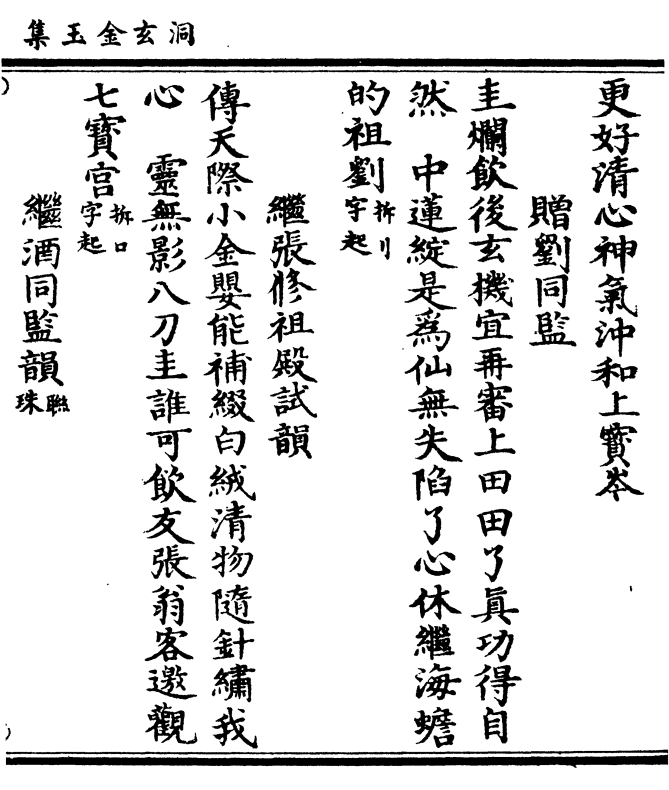 洞玄金玉集
更好清心神氣沖和上寳岑
贈劉同監
圭爛飲後玄機宜再審上田田了眞功得自
然　中蓮綻是爲仙無失陷了心休繼海蟾
的祖劉拆刂字起
繼張修祖殿試韻
傳天際小金嬰能補綴白絨清物隨針繡我
心　靈無影八刀圭誰可飲友張翁客邀觀
七寳宫拆口字起
繼酒同監韻聯珠